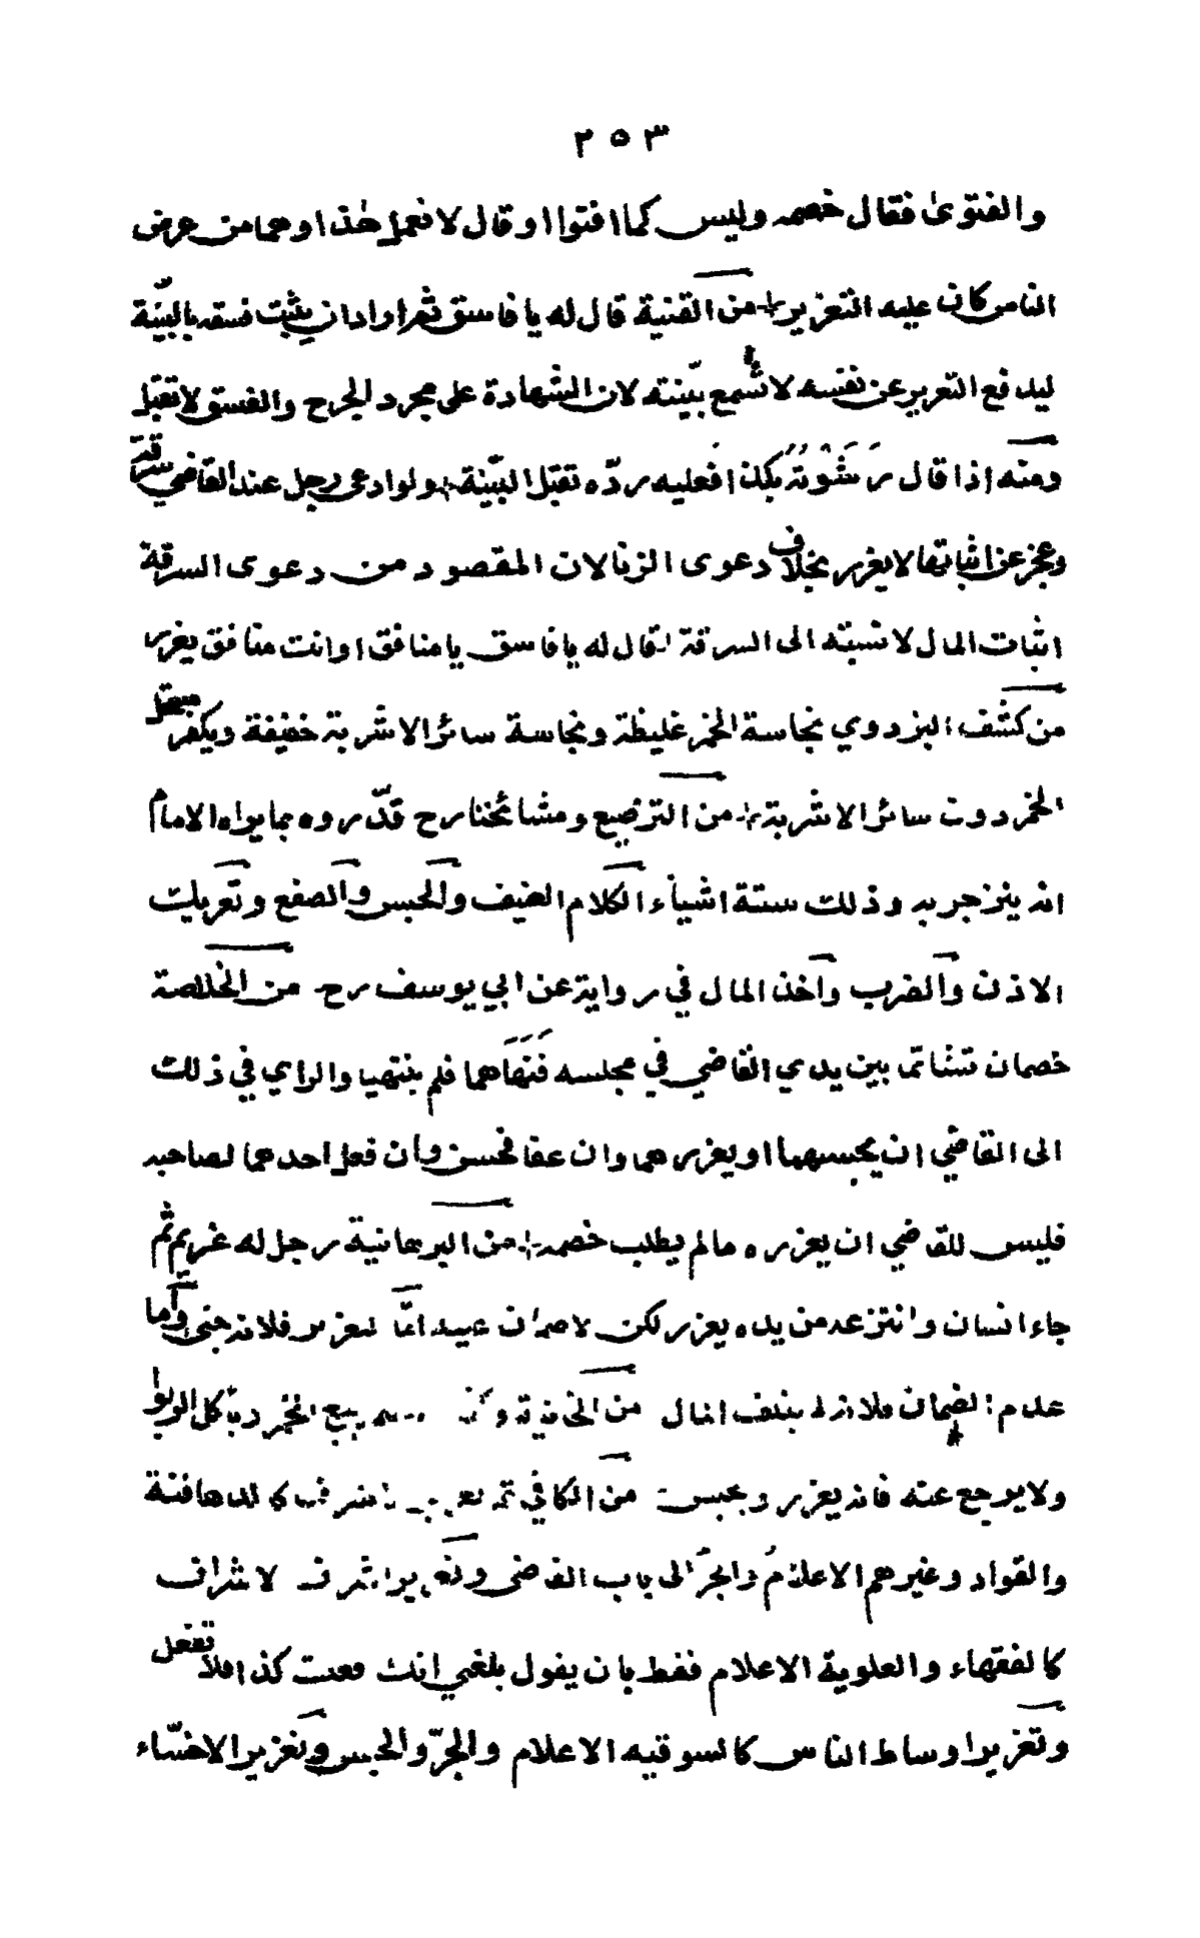 ٢٥٣
والفتوىٰ فقال خصمه وليس كما افتوا او قال لا نعمل هٰذا وهما من عرض
الناس كان عليه التعزير من القنية قال له يا فاسق ثم اراد ان يثبت فسقه بالبيّنة
ليدفع التعزير عن نفسه لا تُسمع بيّنته لان الشهادة على مجرد الجرح والفسق لا تقبل
ومنه اذا قال رَشَوْتَهُ بكذا فعليه ردّه تقبل البيّنة ولو ادعى رجل عند القاضي سرقة
وعجز عن اثباتها لا يعزر بخلاف دعوى الزنا لان المقصود من دعوى السرقة
اثبات المال لا نسبته الى السرقة قال له يا فاسق يا منافق او انت منافق يعزر
من كشف البزدوي نجاسة الخمر غليظة ونجاسة سائر الاشربة خفيفة ويكفر مستحل
الخمر دون سائر الاشربة من الترضيع ومشائخنا رح قدّروه بما يراه الامام
انه ينزجر به وذلك ستة اشياء الكلام العنيف والحبس والصفع وتعريك
الاذن والضرب واخذ المال في رواية عن ابي يوسف رح من الخلاصة
خصمان تشاتما بين يدي القاضي في مجلسه فَنَهَاهما فلم ينتهيا والراي في ذلك
الى القاضي ان يحبسهما او يعزرهما وان عفا فحسن وان فعل احدهما لصاحبه
فليس للقاضي ان يعزره مالم يطلب خصمه من البرهانية رجل له غريم ثم
جاء انسان وانتزعه من يده يعزر لكن لا ضمان عليه امّا التعزير فلانه جنى واما
عدم الضمان فلانه لم يتلف المال من الخانية بيع الخمر وياكل الربوا
ولا يرجع عنه فانه يعزر ويحبس من الكافي ثم كالدهاقنة
والقواد وغيرهم الاعلامُ والجرّ الى باب القاضي وتعزير اشرف الاشراف
كالفقهاء والعلوية الاعلام فقط بان يقول بلغني انك فعلت كذا فلا تفعل
وتعزير اوساط الناس كالسوقيه الاعلام والجرّ والحبس وتعزير الاخسّاء